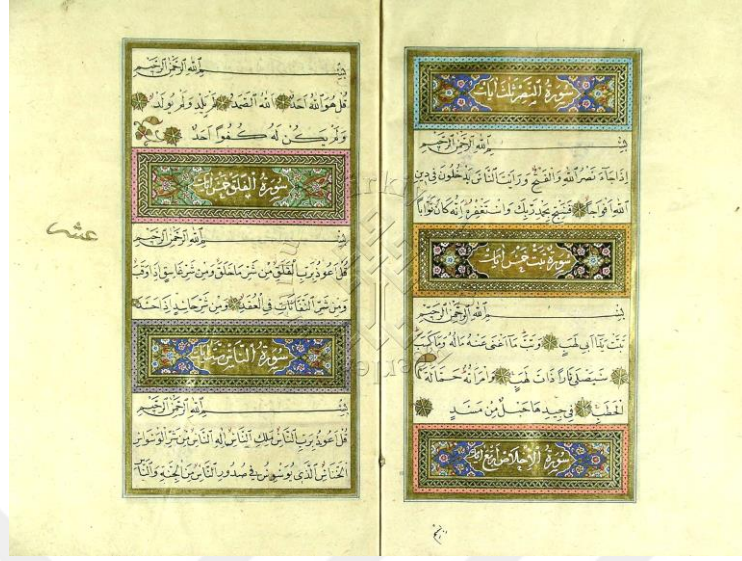 سورة النصر ثلث آيات
بسم الله الرحمن الرحيم
إذا جاء نصر الله والفتح ورأيت الناس يدخلون في دين
الله أفواجا فسبح بحمد ربك واستغفره إنه كان توابا
سورة تبت خمس آيات
بسم الله الرحمن الرحيم
تبت يدا أبي لهب وتب ما أغنى عنه ماله وما كسب
سيصلى نارا ذات لهب وامرأته حمالة
الحطب في جيدها حبل من مسد
سورة الإخلاص أربع آيات
بسم الله الرحمن الرحيم
قل هو الله أحد الله الصمد لم يلد ولم يولد
ولم يكن له كفوا أحد
سورة الفلق خمس آيات
بسم الله الرحمن الرحيم
قل أعوذ برب الفلق من شر ما خلق ومن شر غاسق إذا وقب
ومن شر النفاثات في العقد ومن شر حاسد إذا حسد
سورة الناس
بسم الله الرحمن الرحيم
قل أعوذ برب الناس ملك الناس إله الناس من شر الوسواس
الخناس الذي يوسوس في صدور الناس من الجنة والناس
عشر